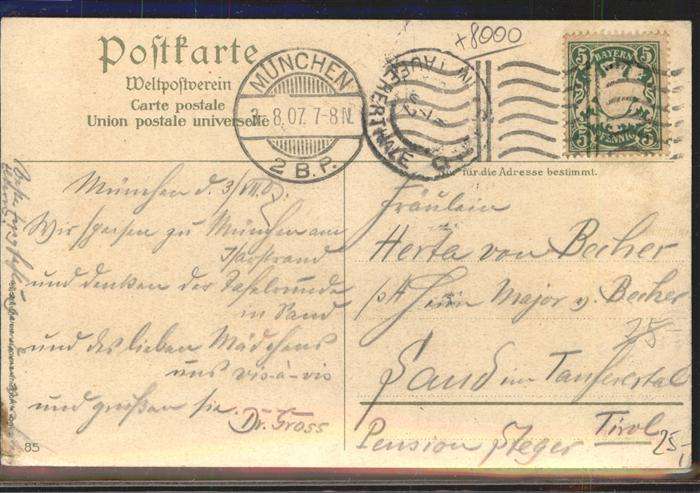 +8000
Postkarte
Weltpostverein
Carte postale
Union postale universelle
MÜNCHEN
3. 8.07. 7-8 N.
2 B.P.
IN TAUFERERTHALE
BAYERN
5 5
5 5
PFENNIG
für die Adresse bestimmt.
München d. 3/VIII.07.
Wir speisen zu München am
Isarstrand
und denken der Tafelrunde
in Sand
und des lieben Mädchens
uns vis-à-vis
und grüßen sie.
Dr. Gross
Fräulein
Herta von Becher
p. A. Herrn Major v. Becher
Sand im Taufererstal
Tirol
Pension Steger
25-
25-
85